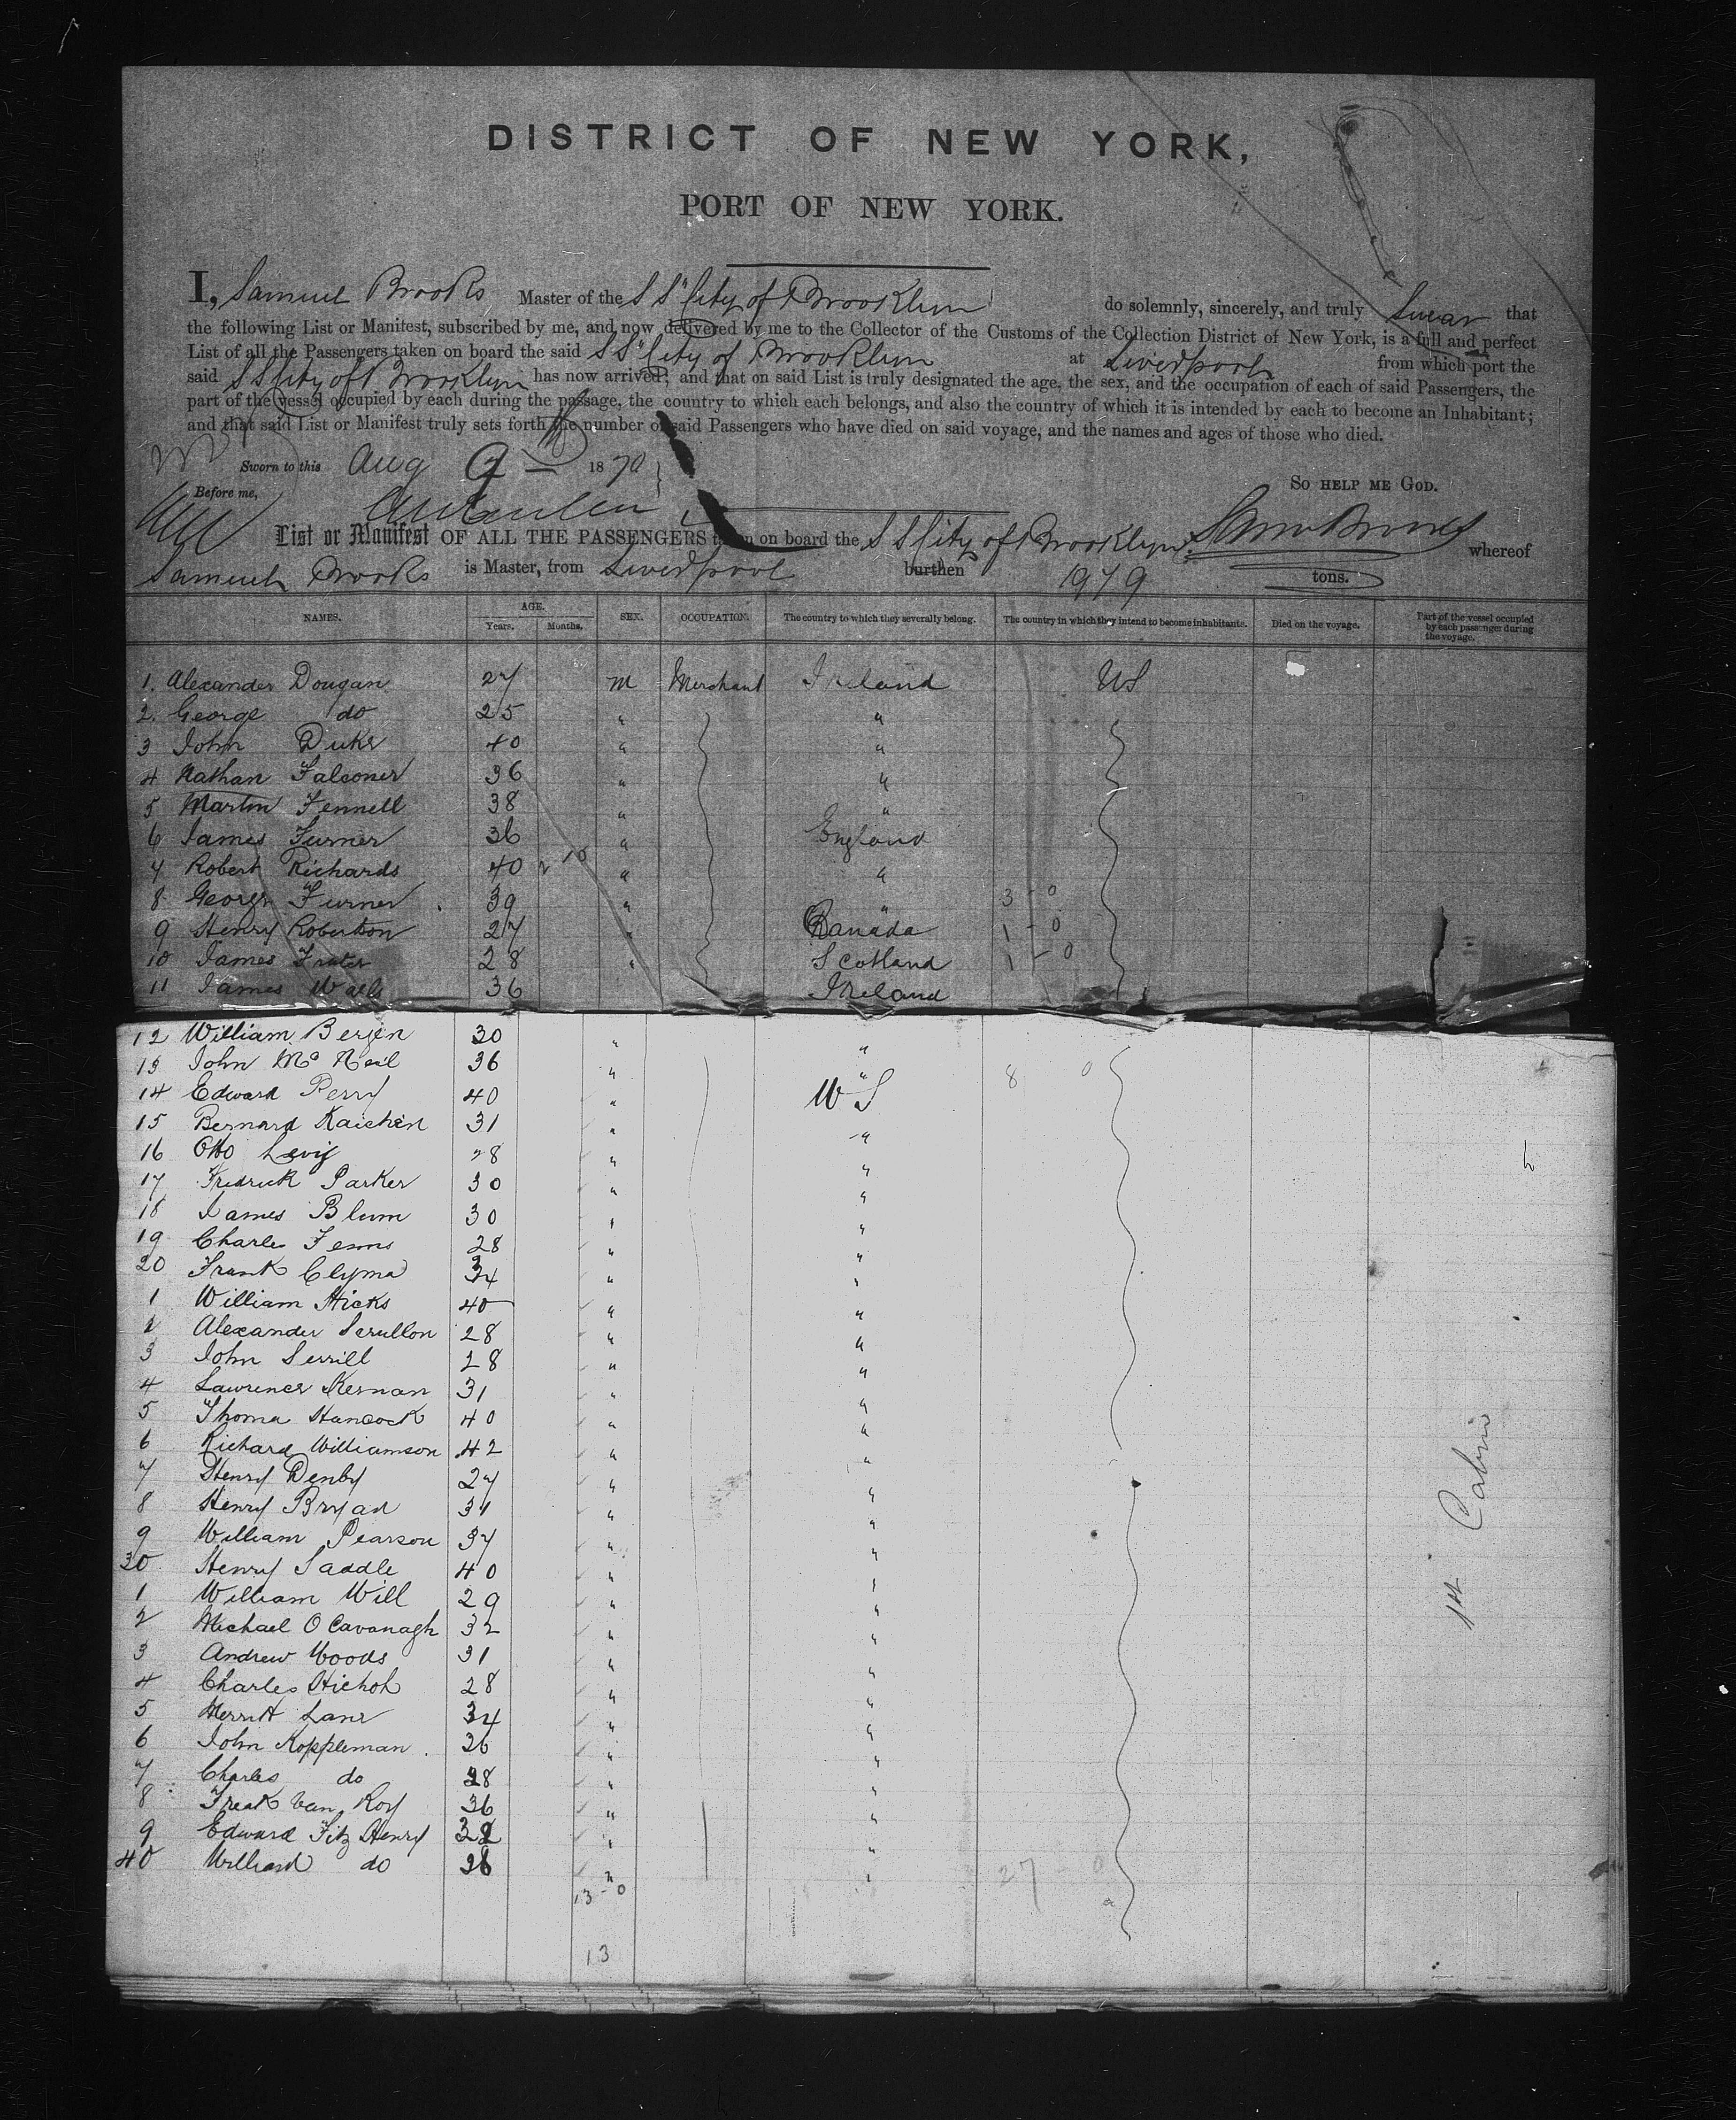 DISTRICT OF NEW YORK,
PORT OF NEW YORK.
I, Samuel Brooks Master of the S S "City of Brooklyn do solemnly, sincerely, and truly Swear that
the following List or Manifest, subscribed by me, and now delivered by me to the Collector of the Customs of the Collection District of New York, is a full and perfect
List of all the Passengers taken on board the said S S "City of Brooklyn at Liverpool from which port the
said S S City of Brooklyn has now arrived; and that on said List is truly designated the age, the sex, and the occupation of each of said Passengers, the
part of the vessel occupied by each during the passage, the country to which each belongs, and also the country of which it is intended by each to become an Inhabitant;
and that said List or Manifest truly sets forth the number of said Passengers who have died on said voyage, and the names and ages of those who died.
Sworn to this Aug 9th 1870
So help me God.
Before me,
List or Manifest OF ALL THE PASSENGERS taken on board the S S City of Brooklyn Sam Brooks whereof
Samuel Brooks is Master, from Liverpool burthen 1979 tons.
NAMES. AGE. Years. Months. SEX. OCCUPATION. The country to which they severally belong. The country in which they intend to become inhabitants. Died on the voyage. Part of the vessel occupied by each passenger during the voyage.
1. Alexander Dougan 27 m Merchant Ireland US
2. George do 25 " "
3 John Duke 40 " "
4 Nathan Falconer 36 " "
5 Martin Fennell 38 " "
6 James Turner 36 " England
7 Robert Richards 40 " "
8 George Turner 39 " " 3 - 0
9 Henry Robertson 27 " Canada 1 - 0
10 James Frater 28 " Scotland 1 - 0
11 James Walls 36 Ireland
12 William Bergen 30 " "
13 John Mc Neil 36 " " 8 0
14 Edward Perry 40 " U S
15 Bernard Kaichen 31 " "
16 Otto Levy 28 " "
17 Fredrick Parker 30 " "
18 James Blum 30 " "
19 Charles 28 " "
20 Frank Clyma 34 " "
1 William Hicks 40 " "
2 Alexander Scrullon 28 " "
3 John Serrill 28 " "
4 Lawrence Kernan 31 " "
5 Thoma Hancock 40 " "
6 Richard Williamson 42 " "
7 Henry Denby 27 " "
8 Henry Bryan 31 " "
9 William Pearson 37 " "
30 Henry Saddle 40 " "
1 William Will 29 " "
2 Michael O Cavanagh 32 " "
3 Andrew Woods 31 " "
4 Charles Hichoh 28 " "
5 Merritt Lane 34 " "
6 John Koppleman 36 " "
7 Charles do 28 " "
8 Freak Van Roy 36 " "
9 Edward Fitz Henry 32 " "
40 Williard do 28 " " 27 0
1st Cabin
13 - 0
13